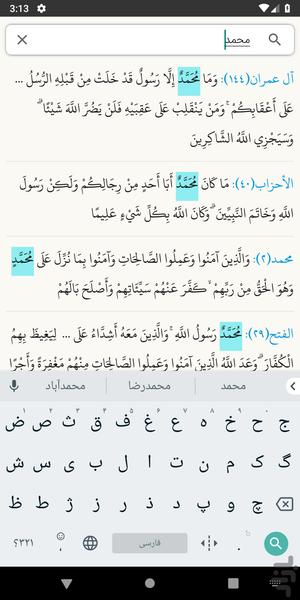 3:13
محمد
آل عمران(١٤٤): وَمَا مُحَمَّدٌ إِلَّا رَسُولٌ قَدْ خَلَتْ مِنْ قَبْلِهِ الرُّسُلُ ...
عَلَى أَعْقَابِكُمْ ۚ وَمَنْ يَنْقَلِبْ عَلَى عَقِبَيْهِ فَلَنْ يَضُرَّ اللَّهَ شَيْئًا ۗ
وَسَيَجْزِي اللَّهُ الشَّاكِرِينَ
الأحزاب(٤٠): مَا كَانَ مُحَمَّدٌ أَبَا أَحَدٍ مِنْ رِجَالِكُمْ وَلَكِنْ رَسُولَ
اللَّهِ وَخَاتَمَ النَّبِيِّينَ ۗ وَكَانَ اللَّهُ بِكُلِّ شَيْءٍ عَلِيمًا
محمد(٢): وَالَّذِينَ آمَنُوا وَعَمِلُوا الصَّالِحَاتِ وَآمَنُوا بِمَا نُزِّلَ عَلَى مُحَمَّدٍ
وَهُوَ الْحَقُّ مِنْ رَبِّهِمْ ۙ كَفَّرَ عَنْهُمْ سَيِّئَاتِهِمْ وَأَصْلَحَ بَالَهُمْ
الفتح(٢٩): مُحَمَّدٌ رَسُولُ اللَّهِ ۚ وَالَّذِينَ مَعَهُ أَشِدَّاءُ عَلَى ... لِيَغِيظَ بِهِمُ
الْكُفَّارَ ۗ وَعَدَ اللَّهُ الَّذِينَ آمَنُوا وَعَمِلُوا الصَّالِحَاتِ مِنْهُمْ مَغْفِرَةً وَأَجْرًا
محمد محمدرضا محمدآباد
ج ح خ ه ع غ ف ق ث ص ض
گ ک م ن ت ا ل ب ی س ش
چ و پ د ذ ر ز ژ ط ظ
فارسی ۳۲۱؟